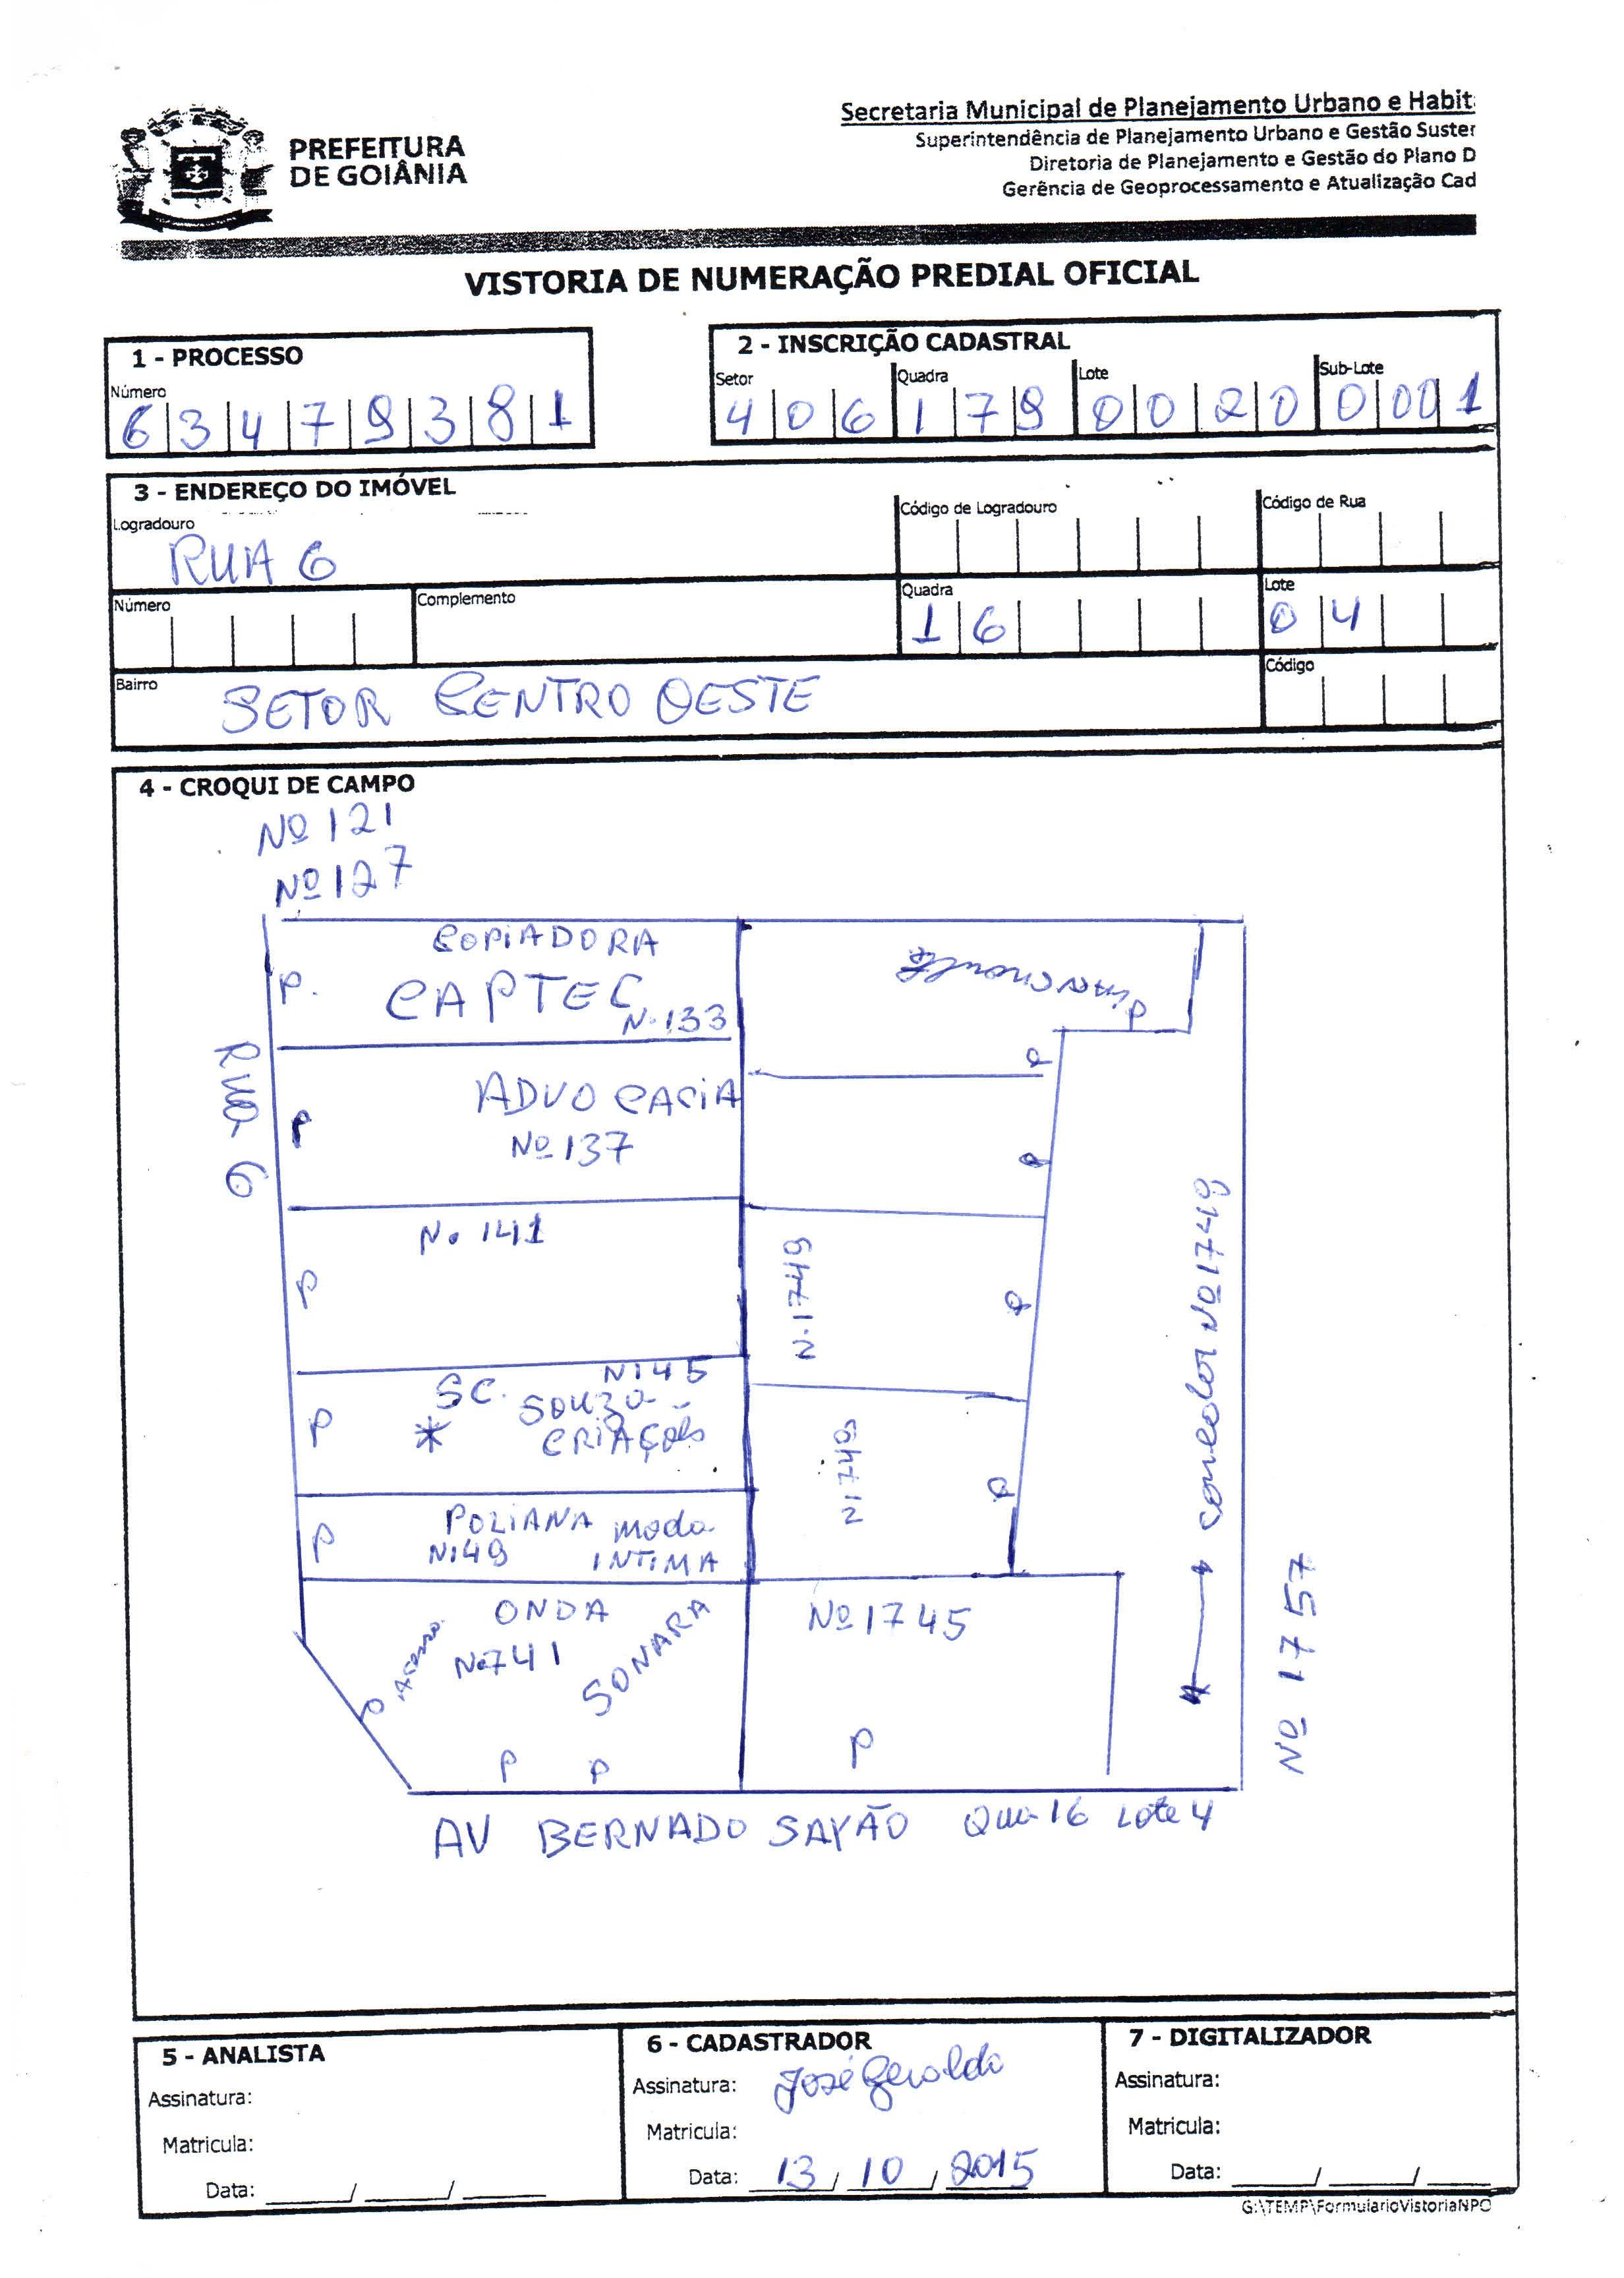 PREFEITURA
DE GOIÂNIA
Secretaria Municipal de Planejamento Urbano e Habit
Superintendência de Planejamento Urbano e Gestão Suster
Diretoria de Planejamento e Gestão do Plano D
Gerência de Geoprocessamento e Atualização Cad
VISTORIA DE NUMERAÇÃO PREDIAL OFICIAL
1 - PROCESSO
Número
6 3 4 7 9 3 8 1
2 - INSCRIÇÃO CADASTRAL
Setor Quadra Lote Sub-Lote
4 0 6 1 7 9 0 0 2 0 0 0 0 1
3 - ENDEREÇO DO IMÓVEL
Logradouro
RUA 6
Código de Logradouro
Código de Rua
Número
Complemento
Quadra
1 6
Lote
0 4
Bairro
SETOR CENTRO OESTE
Código
4 - CROQUI DE CAMPO
Nº 121
Nº 127
COPIADORA
P. CAPTEC
N. 133
Rua 6
ADVOCACIA
P
Nº 137
P
P
N. 141
P
P
N. 1749
corredor Nº 1749
N145
SC. SOUZA
P * CRIAÇÕES
N1745
P
POLIANA moda
P N149 INTIMA
ONDA
SONARA
N.741
P Acesso
P P
Nº 1745
P
Nº 1757
AV BERNADO SAYÃO Qua 16 Lote 4
5 - ANALISTA
Assinatura:
Matricula:
Data: / /
6 - CADASTRADOR
Assinatura: José Geraldo
Matricula:
Data: 13 / 10 / 2015
7 - DIGITALIZADOR
Assinatura:
Matricula:
Data: / /
G:\TEMP\FormularioVistoriaNPO